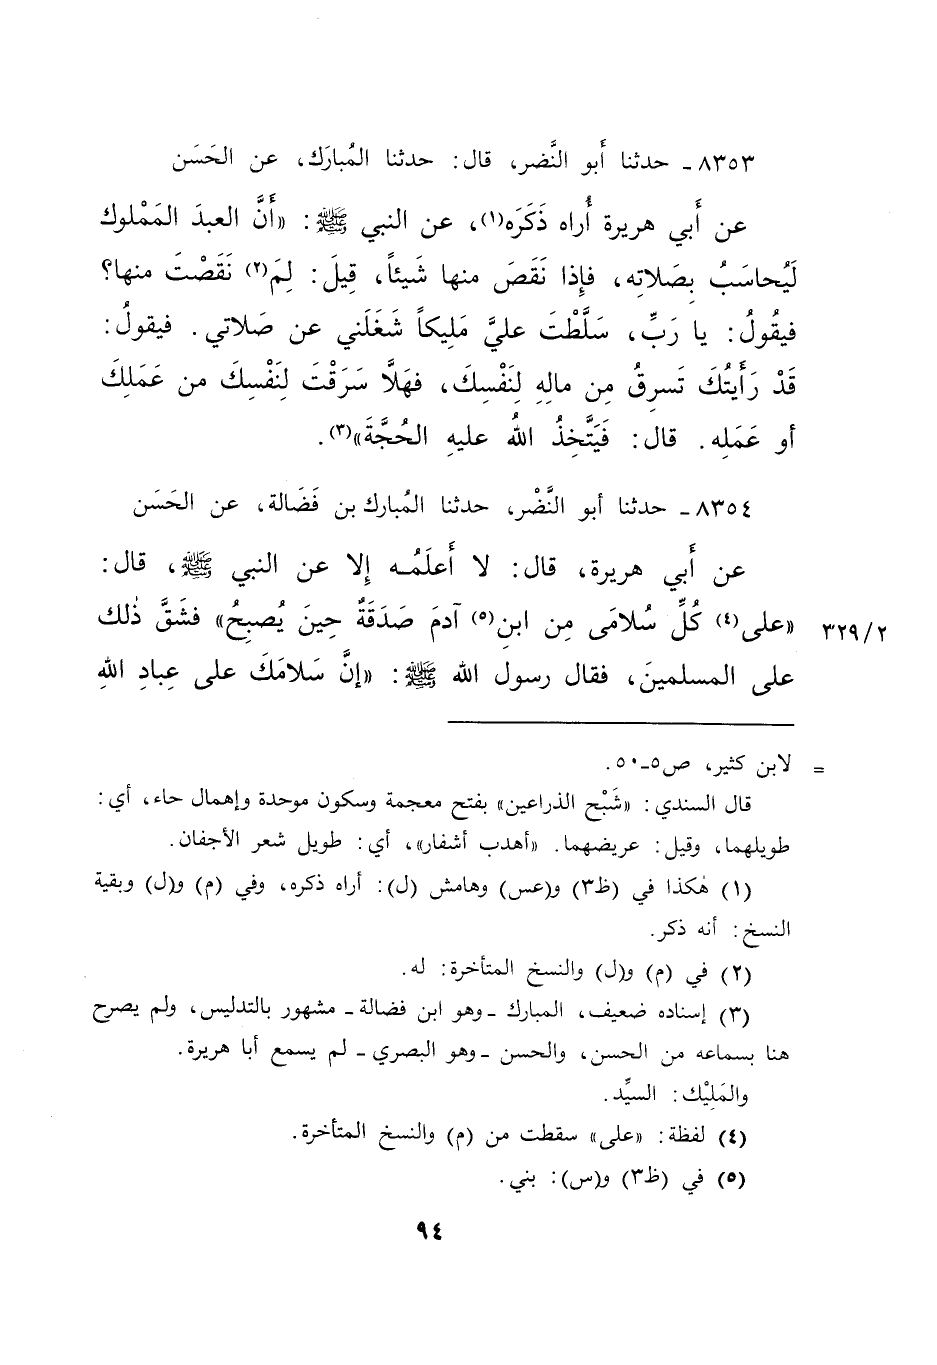 ٨٣٥٣ـ حدثنا أَبو النَّضر، قال: حدثنا المُبارَك، عن الحَسَن
عن أَبي هريرة أُراه ذَكَرَه(١)، عن النبي ﷺ: «أَنَّ العبدَ المَمْلوك
لَيُحاسَبُ بِصَلاتِه، فإِذا نَقَصَ منها شَيئاً، قِيلَ: لِمَ(٢) نَقَصْتَ منها؟
فيقُولُ: يا رَبِّ، سَلَّطْتَ عليَّ مَلِيكاً شَغَلَني عن صَلاتي. فيقولُ:
قَدْ رَأَيتُكَ تَسرِقُ مِن مالِهِ لِنَفْسِكَ، فهَلاَّ سَرَقْتَ لِنَفْسِكَ من عَمَلِكَ
أو عَمَلِه. قال: فَيَتَّخِذُ اللهُ عليهِ الحُجَّةَ»(٣).
٨٣٥٤ـ حدثنا أبو النَّضْر، حدثنا المُبارك بن فَضَالة، عن الحَسَن
عن أَبي هريرة، قال: لا أَعلَمُـه إلا عن النبي ﷺ، قال:
«على(٤) كُلِّ سُلامَى مِن ابنِ(٥) آدمَ صَدَقَةٌ حِينَ يُصبِحُ» فشَقَّ ذٰلك
٣٢٩/٢
على المسلمينَ، فقال رسول الله ﷺ: «إنَّ سَلامَكَ على عِبادِ اللهِ
= لابن كثير، ص٥ـ٥٠.
قال السندي: «شَبْح الذراعين» بفتح معجمة وسكون موحدة وإهمال حاء، أي:
طويلهما، وقيل: عريضهما. «أهدب أشفار»، أي: طويل شعر الأجفان.
(١) هٰكذا في (ظ٣) و(عس) وهامش (ل): أراه ذكره، وفي (م) و(ل) وبقية
النسخ: أنه ذكر.
(٢) في (م) و(ل) والنسخ المتأخرة: له.
(٣) إسناده ضعيف، المبارك ـ وهو ابن فضالة ـ مشهور بالتدليس، ولم يصرح
هنا بسماعه من الحسن، والحسن ـ وهو البصري ـ لم يسمع أبا هريرة.
والمَلِيْك: السيِّد.
(٤) لفظة: «على» سقطت من (م) والنسخ المتأخرة.
(٥) في (ظ٣) و(س): بني.
٩٤